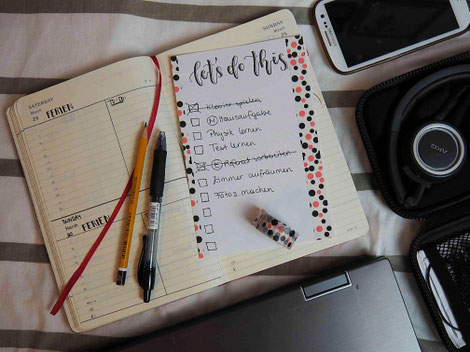 let's do this
Klavier spielen
M Hausaufgabe
Physik lernen
Test lernen
E Referat vorbereiten
Zimmer aufräumen
Fotos machen
SATURDAY
FERIEN
SUNDAY
FERIEN
SATURDAY
SUNDAY
AKG